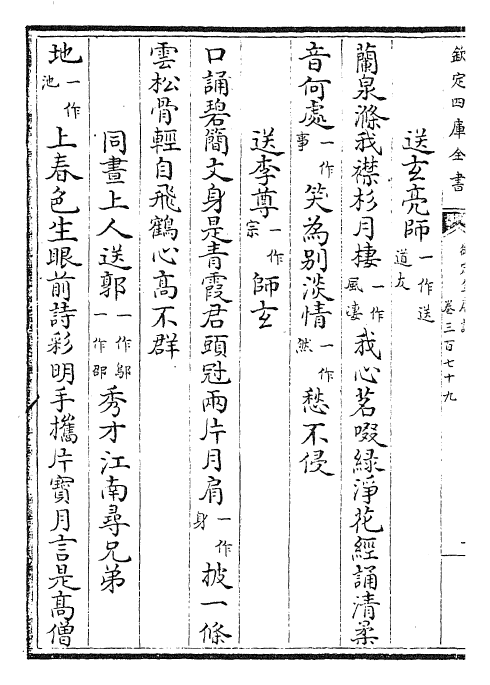 欽定四庫全書
卷三百七十九
送玄亮師一作送道友
蘭泉滌我襟杉月棲一作風凄我心茗啜綠淨花經誦清柔
音何處一作事笑為別淡情一作然愁不侵
送李尊一作宗師玄
口誦碧簡文身是青霞君頭冠兩片月肩一作身披一條
雲松骨輕自飛鶴心高不群
同晝上人送郭一作鄔一作邵秀才江南尋兄弟
地一作池上春色生眼前詩彩明手攜片寶月言是高僧